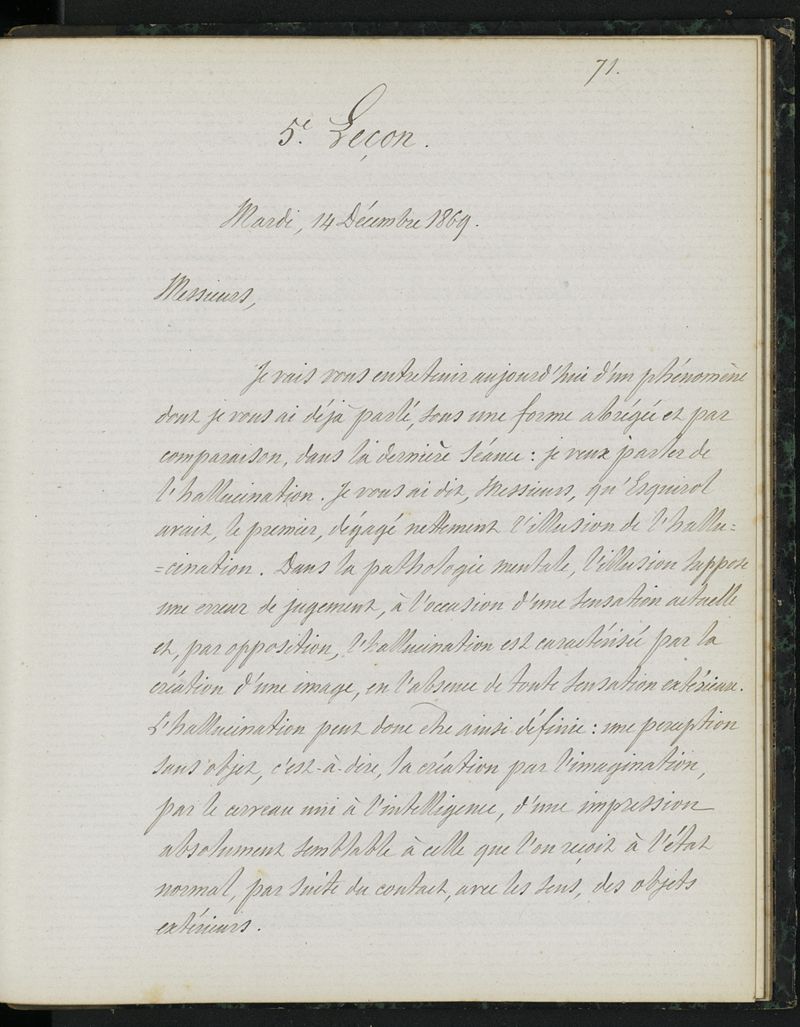 71.
5e. Leçon.
Mardi, 14 Décembre 1869.
Messieurs,
Je vais vous entretenir aujourd'hui d'un phénomène
dont je vous ai déjà parlé, sous une forme abrégée et par
comparaison, dans la dernière séance : je veux parler de
l'hallucination. Je vous ai dit, Messieurs, qu'Esquirol
avait, le premier, dégagé nettement l'illusion de l'hallu=
=cination. Dans la pathologie mentale, l'illusion suppose
une erreur de jugement, à l'occasion d'une sensation actuelle
et, par opposition, l'hallucination est caractérisée par la
création d'une image, en l'absence de toute sensation extérieure.
L'hallucination peut donc être ainsi définie : une perception
sans objet, c'est-à-dire, la création par l'imagination,
par le cerveau uni à l'intelligence, d'une impression
absolument semblable à celle que l'on reçoit à l'état
normal, par suite du contact, avec les sens, des objets
extérieurs.